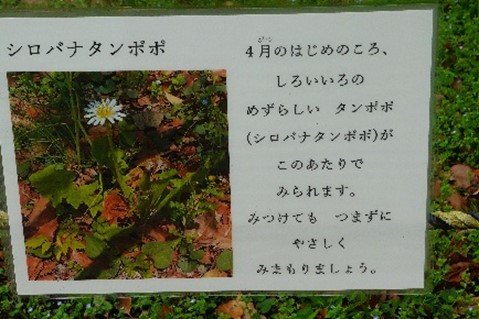 シロバナタンポポ
4月のはじめのころ、
がつ
しろいいろの
めずらしい タンポポ
(シロバナタンポポ)が
このあたりで
みられます。
みつけても つまずに
やさしく
みまもりましょう。